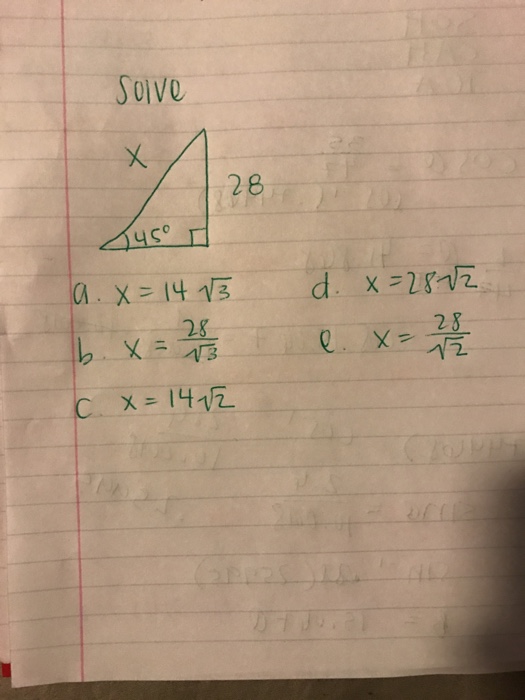 Solve
x
28
45°
a. x = 14 √3
b. x = 28/√3
c x = 14√2
d. x = 28√2
e. x = 28/√2